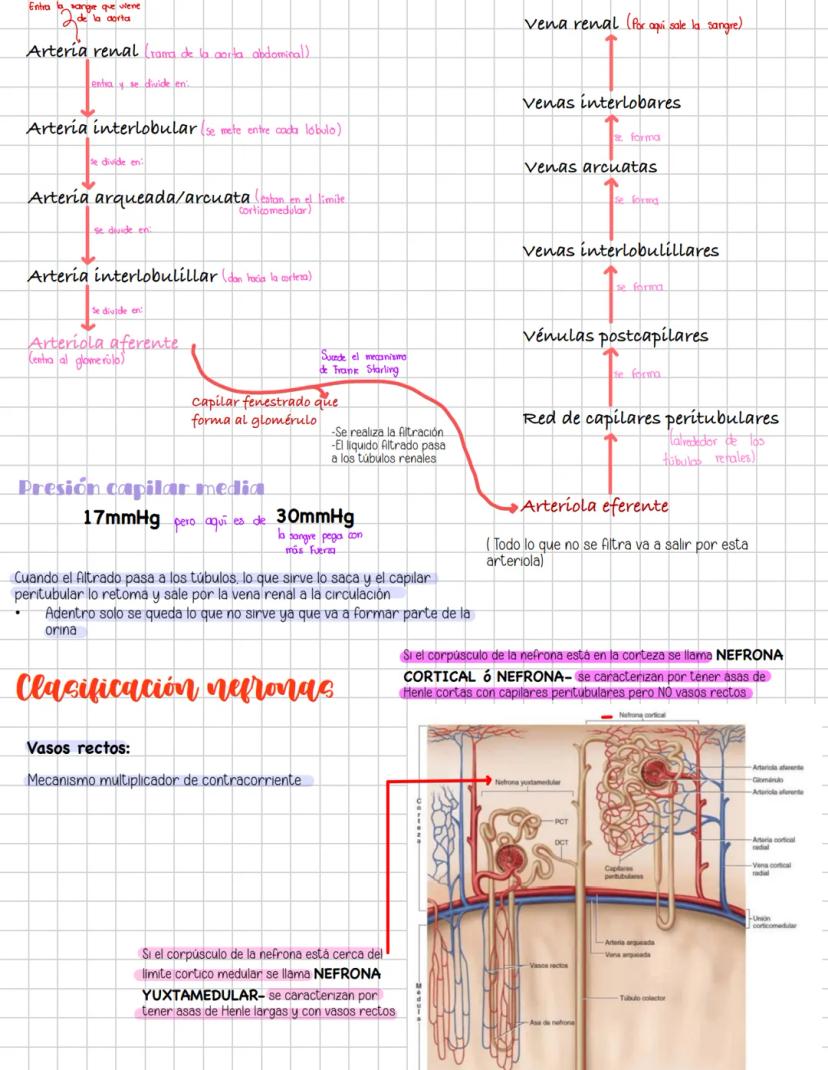 Entra la sangre que viene
de la aorta
Arteria renal (rama de la aorta abdominal)
entra y se divide en:
Arteria interlobular (se mete entre cada lóbulo)
se divide en:
Arteria arqueada/arcuata (estan en el limite
corticomedular)
se divide en:
Arteria interlobulillar (dan hacia la corteza)
se divide en:
Arteriola aferente
(entra al glomerulo)
Sucede el mecanismo
de Frank Starling
Capilar fenestrado que
forma al glomérulo
-Se realiza la filtración
-El líquido filtrado pasa
a los túbulos renales
Vena renal (Por aquí sale la sangre)
Venas interlobares
se forma
Venas arcuatas
se forma
Venas interlobulillares
se forma
Vénulas postcapilares
se forma
Red de capilares peritubulares
(alrededor de los
túbulos renales)
Arteriola eferente
( Todo lo que no se filtra va a salir por esta
arteriola)
Presión capilar media
17mmHg pero aquí es de 30mmHg
la sangre pega con
más fuerza
Cuando el filtrado pasa a los túbulos, lo que sirve lo saca y el capilar
peritubular lo retoma y sale por la vena renal a la circulación
• Adentro solo se queda lo que no sirve ya que va a formar parte de la
orina
Clasificación nefronas
Si el corpúsculo de la nefrona está en la corteza se llama NEFRONA
CORTICAL ó NEFRONA- se caracterizan por tener asas de
Henle cortas con capilares peritubulares pero NO vasos rectos
Vasos rectos:
Mecanismo multiplicador de contracorriente
Si el corpúsculo de la nefrona está cerca del
límite cortico medular se llama NEFRONA
YUXTAMEDULAR- se caracterizan por
tener asas de Henle largas y con vasos rectos
Nefrona cortical
Nefrona yuxtamedular
Corteza
PCT
DCT
Capilares
peritubulares
Arteriola aferente
Glomérulo
Arteriola eferente
Arteria cortical
radial
Vena cortical
radial
Unión
corticomedular
Arteria arqueada
Vena arqueada
Vasos rectos
Médula
Túbulo colector
Asa de nefrona